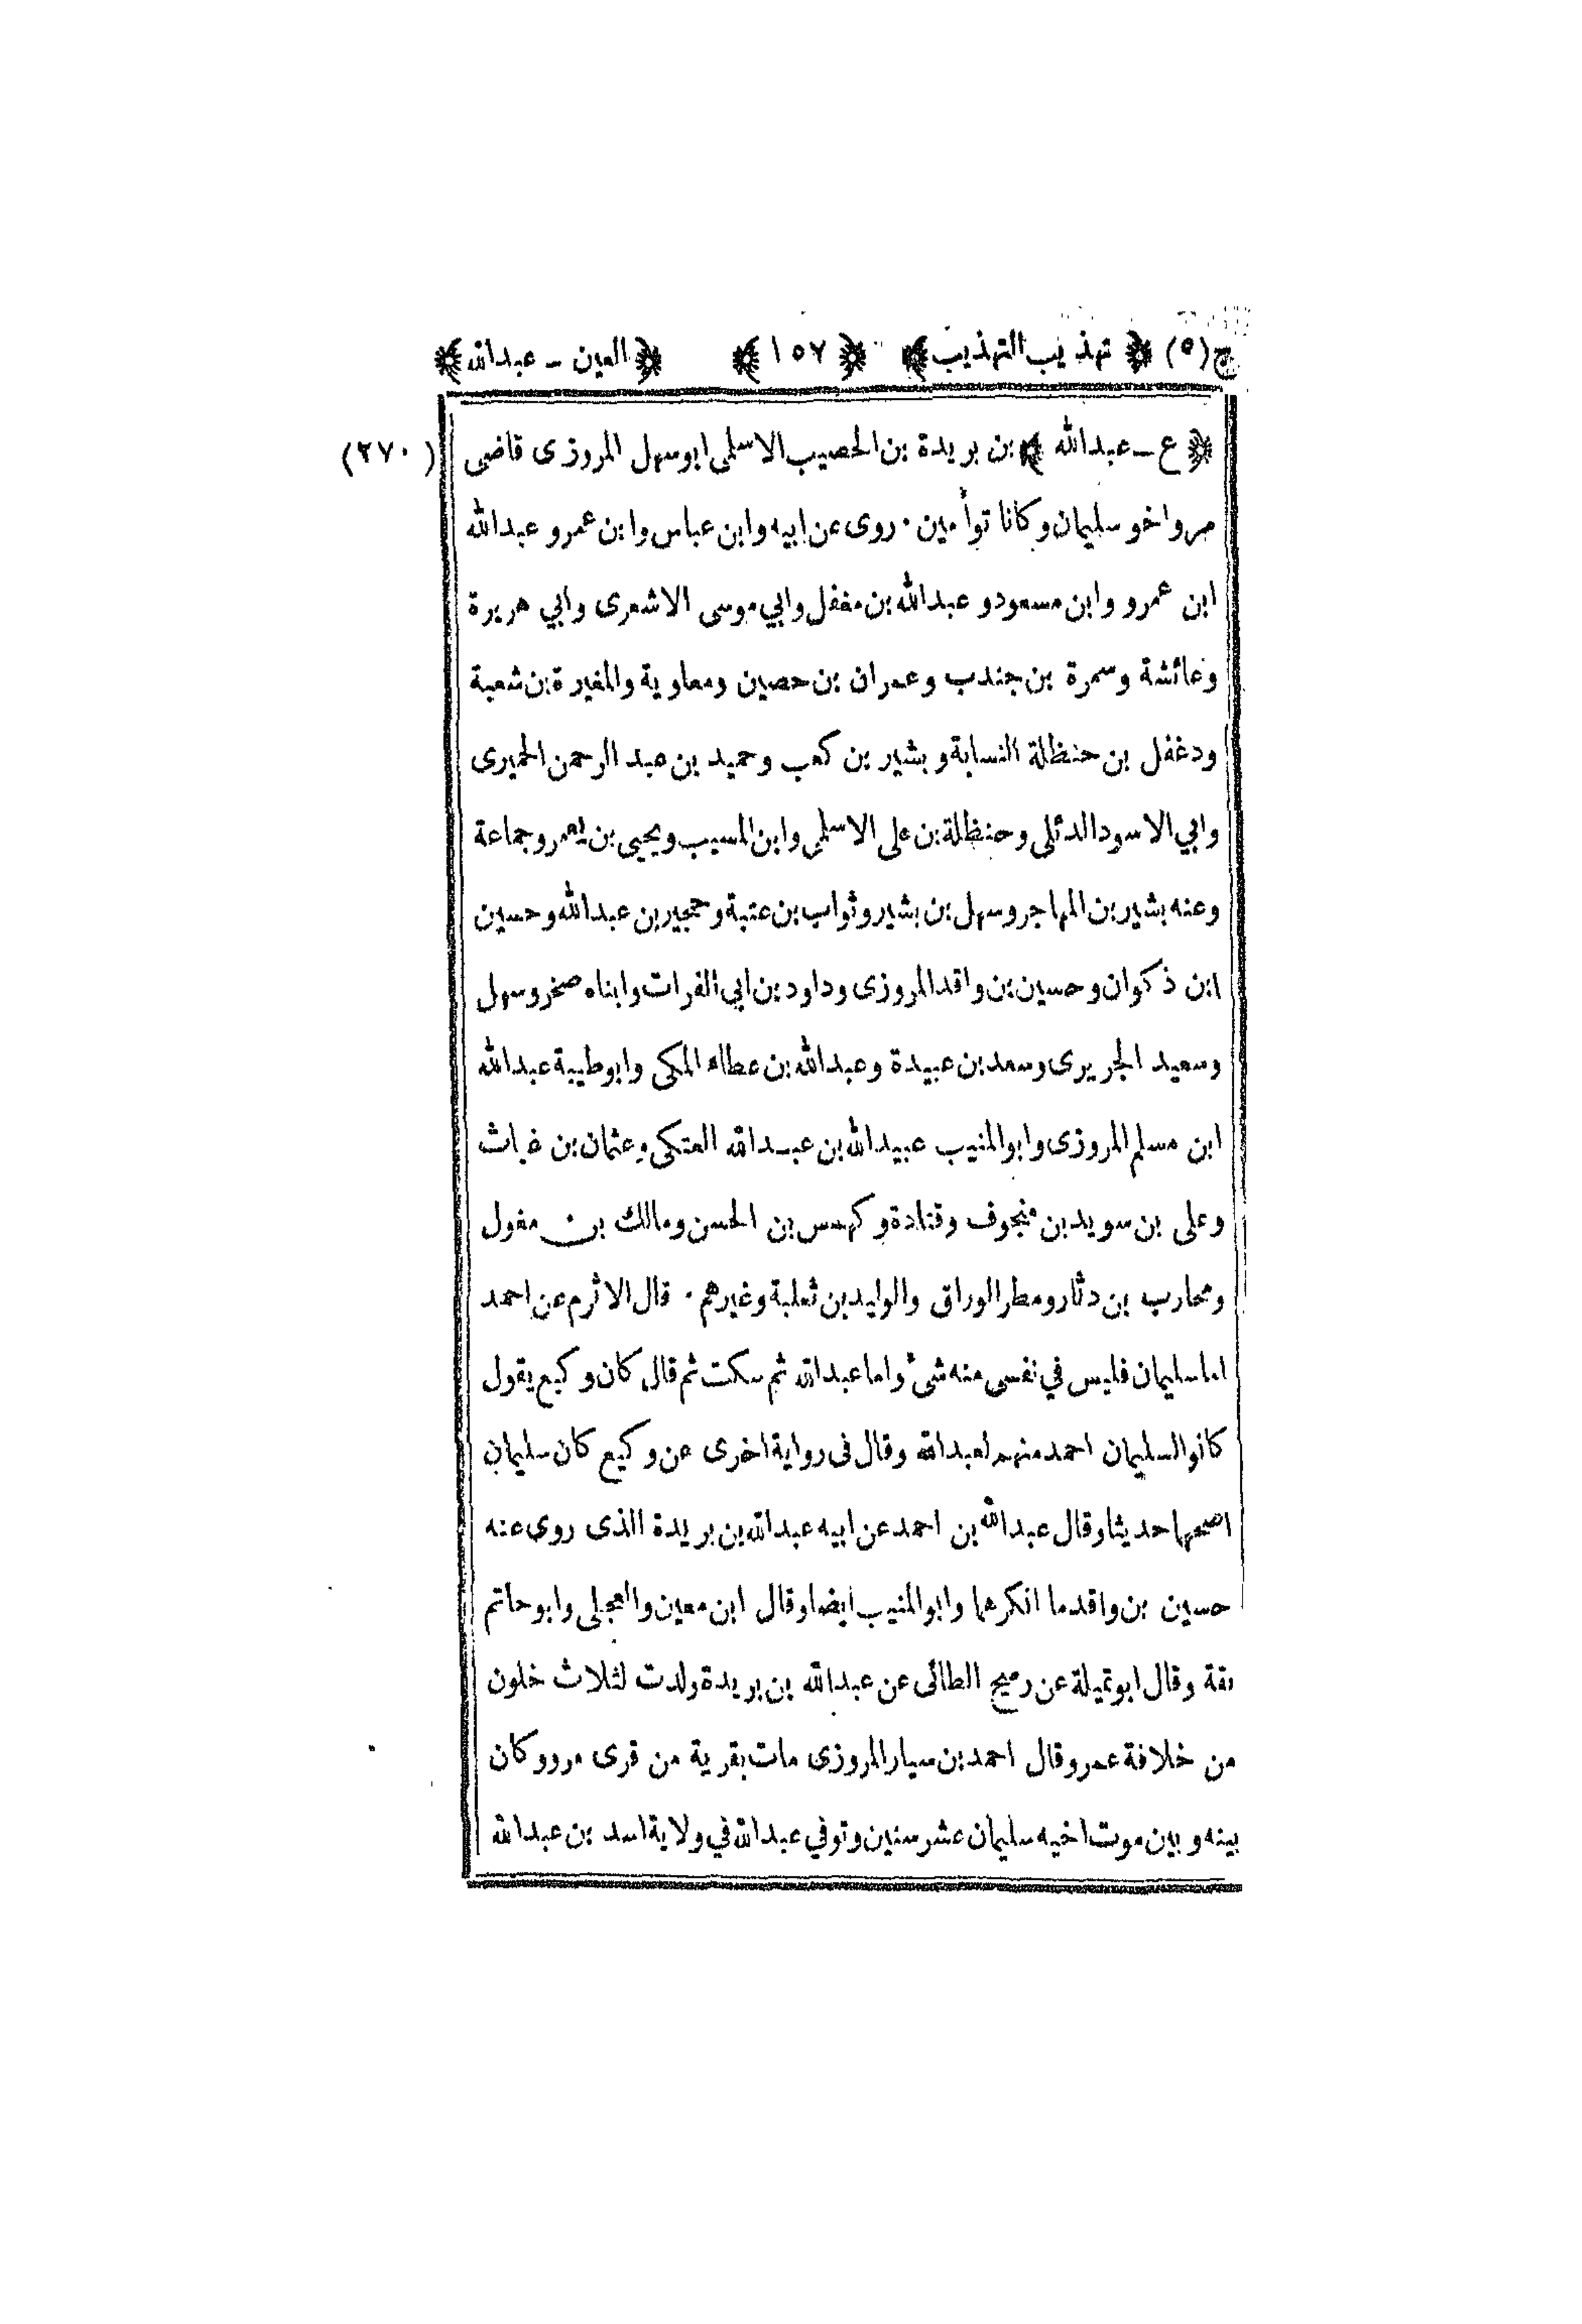 ج (٥) ﴿ تهذيب التهذيب ﴾ ﴿ ١٥٧ ﴾ ﴿ العين - عبدالله ﴾
﴿ ع - عبدالله ﴾ بن بريدة بن الحصيب الاسلمى ابوسهل المروزى قاضى (٢٧٠)
مرواخو سليمان وكانا توأمين . روى عن ابيه وابن عباس وابن عمرو عبدالله
ابن عمرو وابن مسعودو عبدالله بن مغفل وابي موسى الاشعرى وابي هريرة
وعائشة وسمرة بن جندب وعمران بن حصين ومعاوية والمغيرة بن شعبة
ودغفل بن حنظلة النسابة وبشير بن كعب وحميد بن عبد الرحمن الحميرى
وابي الاسود الدئلى وحنظلة بن على الاسلمى وابن المسيب ويحيى بن يعمر وجماعة
وعنه بشير بن المهاجر وسهل بن بشير وثواب بن عتبة وحجير بن عبدالله وحسين
ابن ذكوان وحسين بن واقد المروزى وداود بن ابي الفرات وابناه صخر وسهل
وسعيد الجريرى وسعد بن عبيدة وعبدالله بن عطاء المكى وابوطيبة عبدالله
ابن مسلم المروزى وابو المنيب عبيدالله بن عبدالله العتكى وعثمان بن غياث
وعلى بن سويد بن منجوف وقتادة وكهمس بن الحسن ومالك بن مغول
ومحارب بن دثار ومطر الوراق والوليد بن ثعلبة وغيرهم . قال الاثرم عن احمد
اما سليمان فليس في نفسى منه شئ واما عبدالله ثم سكت ثم قال كان وكيع يقول
كانوا لسليمان احمد منهم لعبدالله وقال فى رواية اخرى عن وكيع كان سليمان
اصحهما حديثا وقال عبدالله بن احمد عن ابيه عبدالله بن بريدة الذى روى عنه
حسين بن واقد ما انكرها وابو المنيب ايضا وقال ابن معين والعجلى وابو حاتم
ثقة وقال ابو تميلة عن رميح الطائى عن عبدالله بن بريدة ولدت لثلاث خلون
من خلافة عمر وقال احمد بن سيار المروزى مات بقرية من قرى مرو وكان
بينه وبين موت اخيه سليمان عشر سنين وتوفي عبدالله في ولاية اسد بن عبدالله